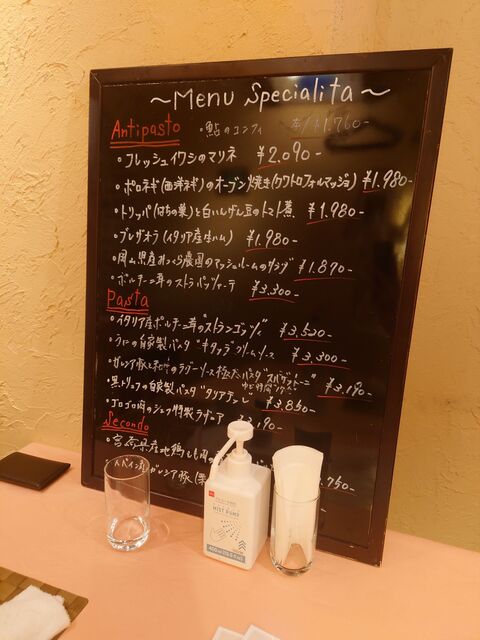 ~Menu Specialita~
Antipasto
・鮎のコンフィ 本/¥1.760-
・フレッシュイワシのマリネ ¥2.090-
・ポロネギ(西洋ネギ)のオーブン焼き(クワトロフォルマッジョ) ¥1.980-
・トリッパ(はちの巣)と白いんげん豆のトマト煮 ¥1.980-
・ブレザオラ(イタリア産生ハム) ¥1.980-
・岡山県産 農園のマッシュルームのサラダ ¥1.870-
・ポルチーニ茸のストラパッツァーテ ¥3.300-
Pasta
・イタリア産ポルチーニ茸の"ストランゴッツィ" ¥3.520-
・うにの自家製パスタ"キタッラ"クリームソース ¥3.300-
・ガレシア豚と和牛のラグーソース極太パスタ ¥3.190-
・黒トリュフの自家製パスタ"タリアテッレ" ¥3.850-
・ゴロゴロ肉のシェフ特製ラザニア ¥ .190-
Secondo
・宮崎県産地鶏もも肉の
・スペイン産ガレシア豚 .750-
MIST PUMP
400ml